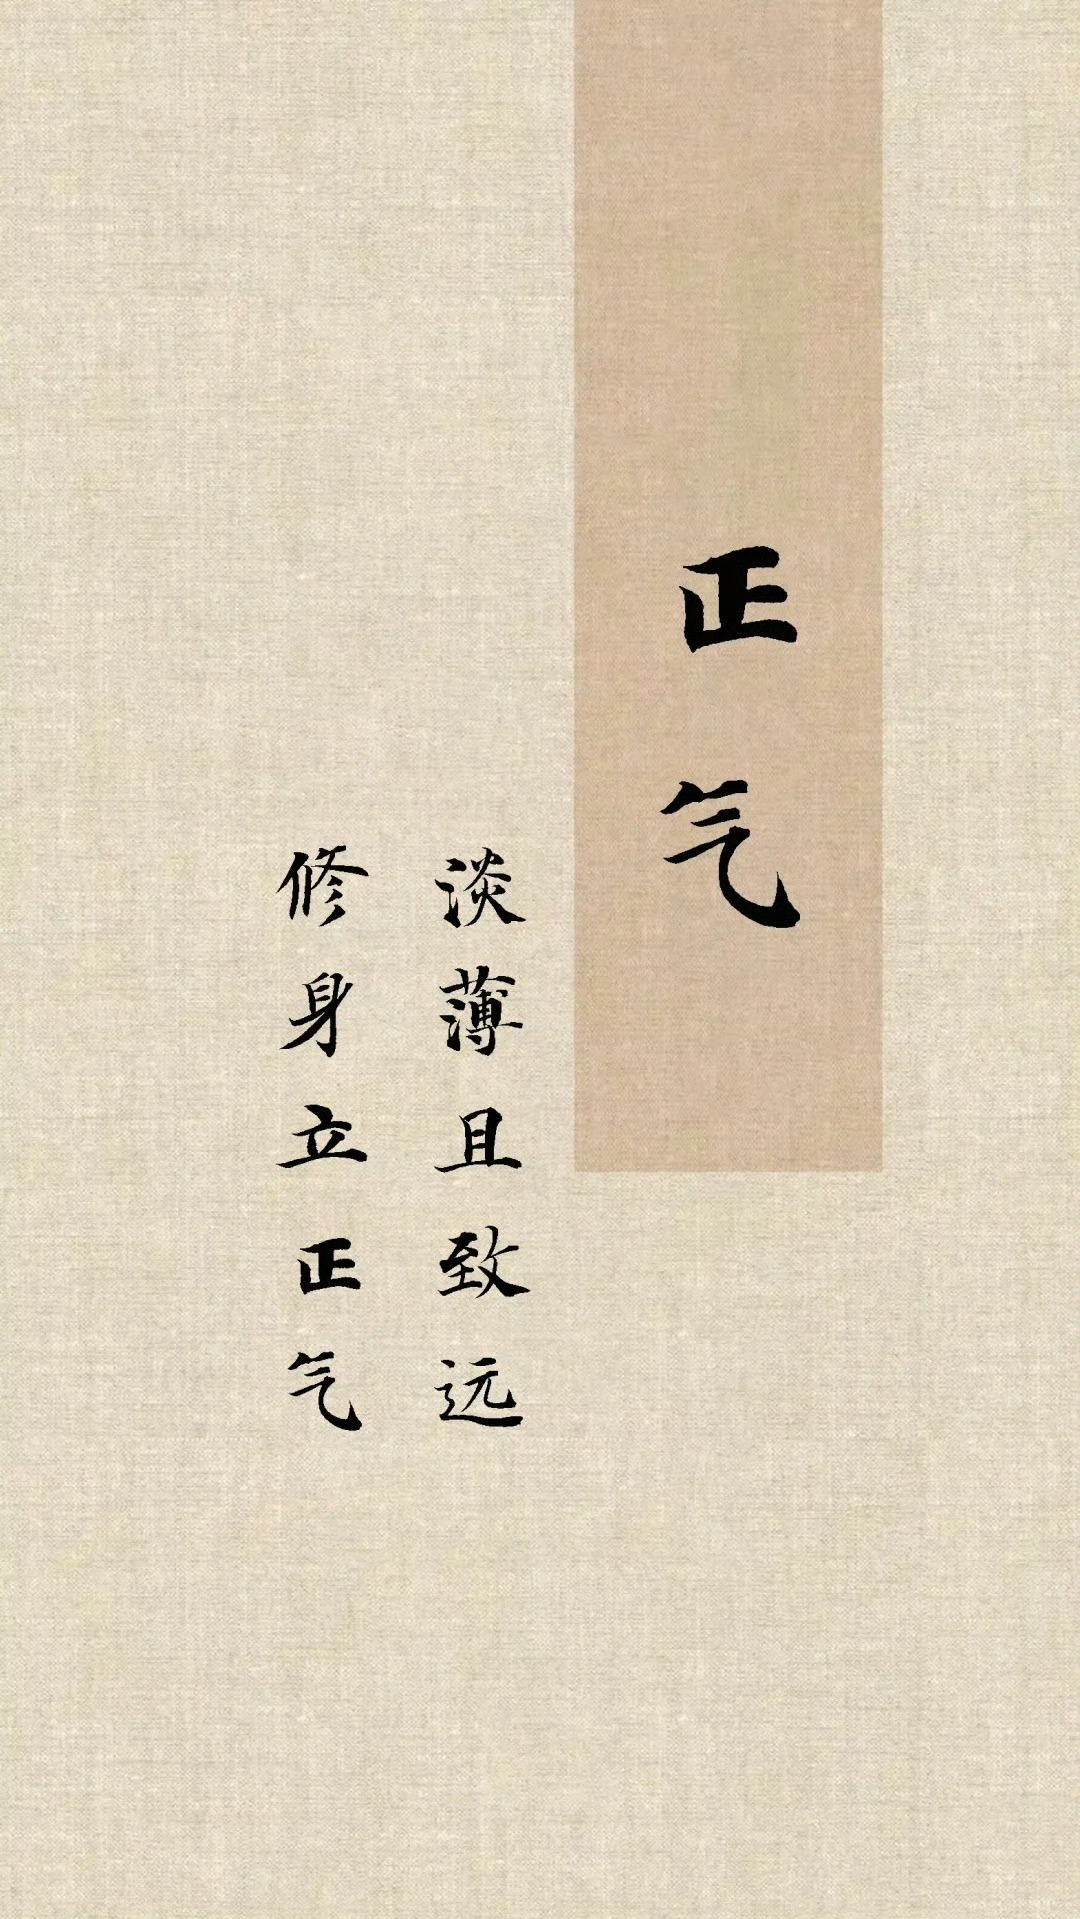 正气
淡薄且致远
修身立正气